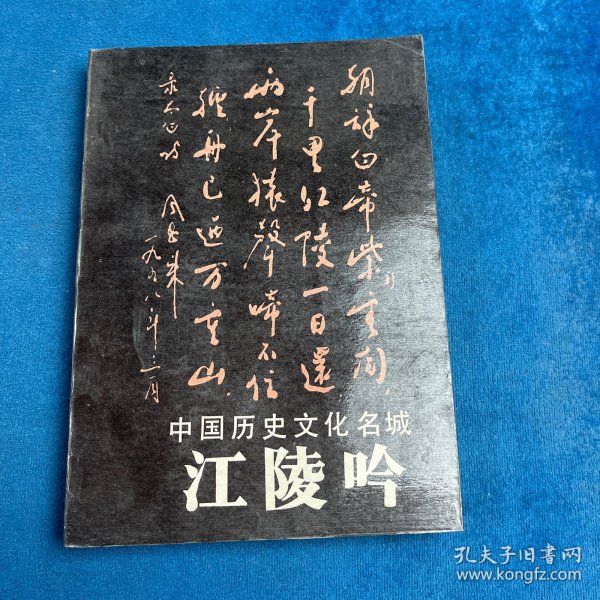 朝辞白帝彩云间，
千里江陵一日還
两岸猿聲啼不住
轻舟已過万重山．
周恩来
一九五八年三月
中国历史文化名城
江陵吟
孔夫子旧书网
www.kongfz.com